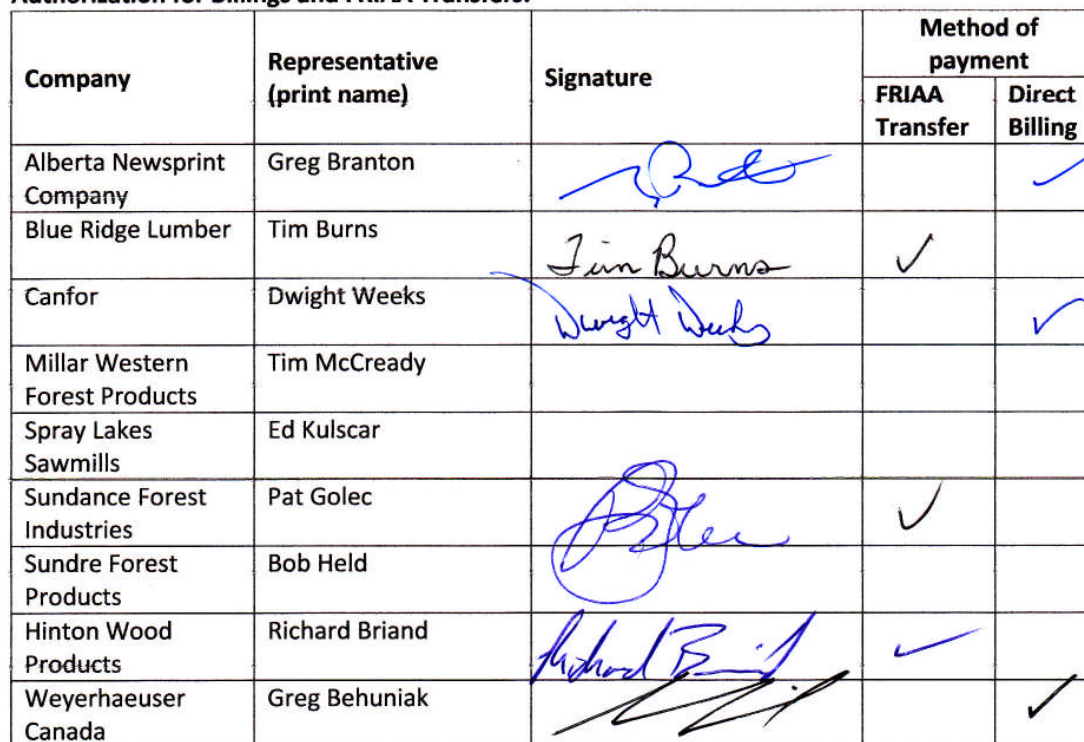 Authorization for Billings and FRIAA Transfers:
Company
Representative
(print name)
Signature
Method of
payment
FRIAA
Transfer
Direct
Billing
Alberta Newsprint
Company
Greg Branton
Blue Ridge Lumber
Tim Burns
Tim Burns
Canfor
Dwight Weeks
Dwight Weeks
Millar Western
Forest Products
Tim McCready
Spray Lakes
Sawmills
Ed Kulscar
Sundance Forest
Industries
Pat Golec
Sundre Forest
Products
Bob Held
Hinton Wood
Products
Richard Briand
Richard Briand
Weyerhaeuser
Canada
Greg Behuniak